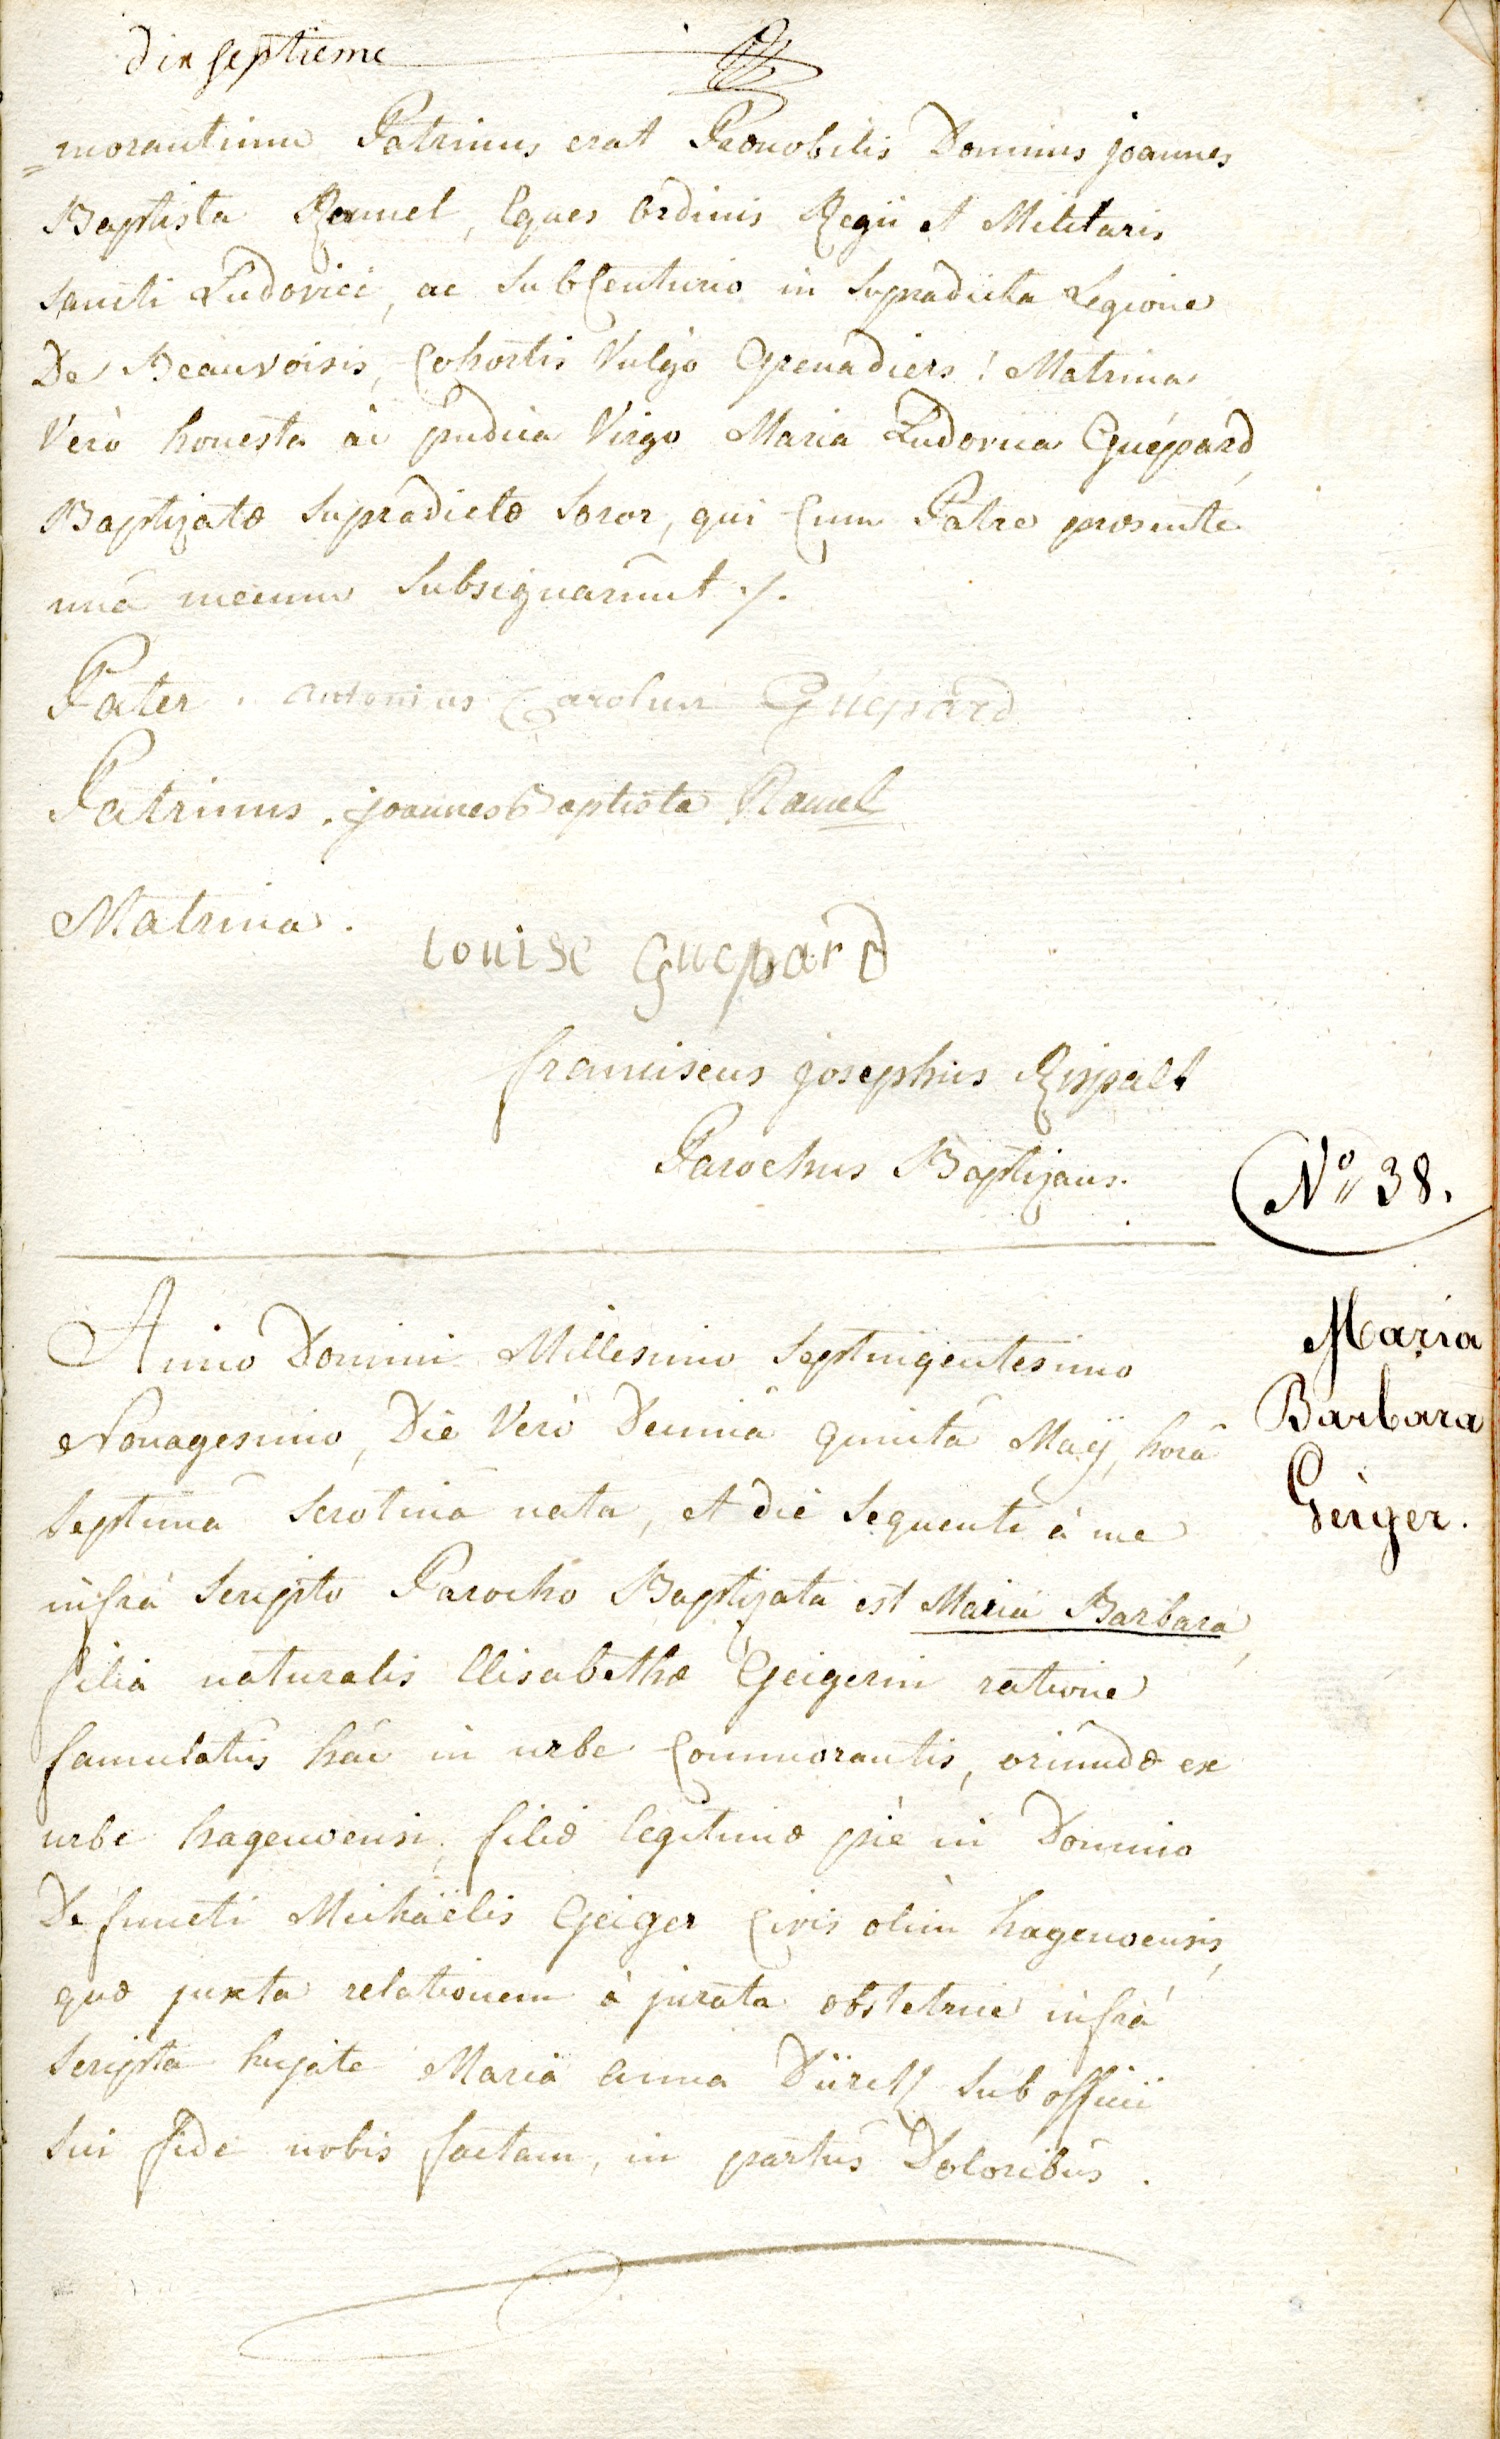 dix septieme
=morantium Patrinus erat Praenobilis Dominus joannes
Baptista Ramel, Eques Ordinis Regii et Militaris
Sancti Ludovici, ac SubCenturio in Supradicta Legione
De Beauvoisis, Cohortis Vulgo Grenadiers! Matrina
Verò honesta ac pudica Virgo Maria Ludovica Guépard,
Baptizatæ Supradictæ Soror, qui Cum Patre præsente
unâ mecum Subsignarûnt ./.
Pater . antonius Carolus Guepard
Patrinus . joannes Baptista Ramel
Matrina .
Louise Guepard
franciscus josephus Rispalt
Parochus Baptizans.
N.º 38.
Maria
Barbara
Geiger.
Anno Domini Millesimo Septingentesimo
Nonagesimo, Die Verò Decimâ quintâ Maÿ, horâ
Septimâ Serotinâ nata, et die Sequenti à me
infrà Scripto Parocho Baptizata est Maria Barbara,
filia naturalis Elisabethæ Geigerin ratione
famulatûs hâc in urbe Commorantis, oriundæ ex
urbe hagenoensi, filiæ legitimæ piè in Domino
Defuncti Michaëlis Geiger Civis olim hagenoensis,
quæ juxta relationem à jurata obstetrice infrà
Scripta hujate Mariâ anna Dürell Sub officii
Sui fide nobis factam, in partûs Doloribûs .